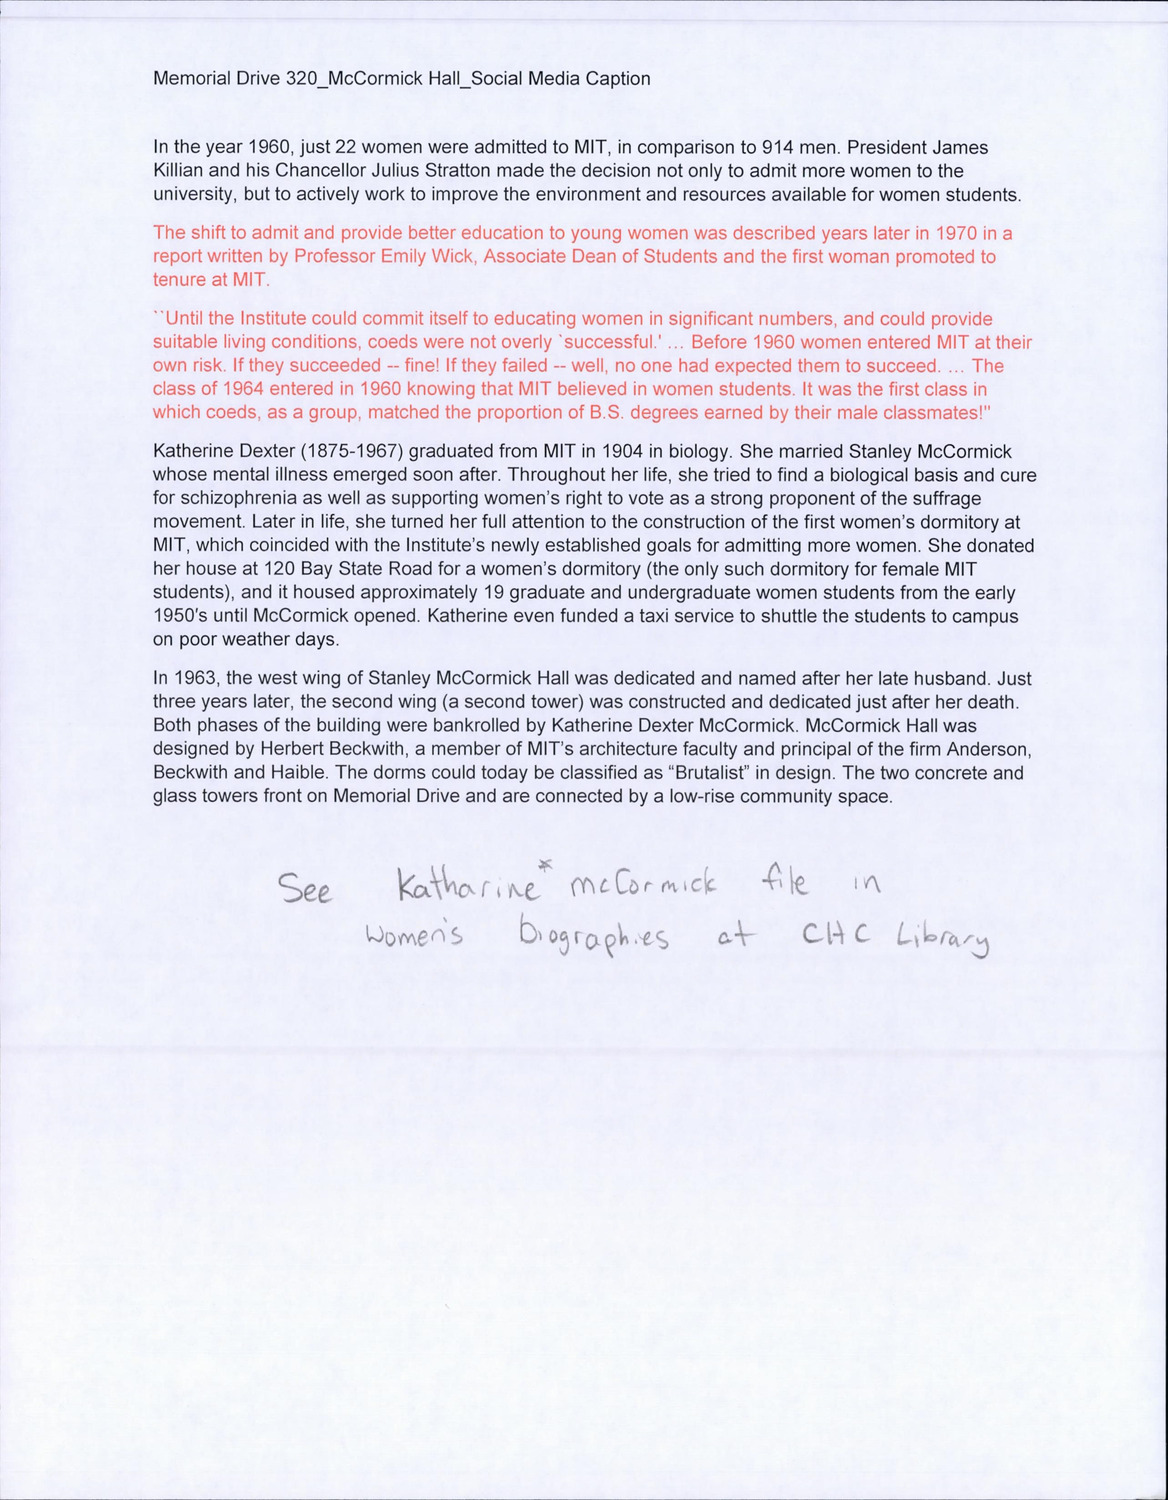 Memorial Drive 320_McCormick Hall_Social Media Caption
In the year 1960, just 22 women were admitted to MIT, in comparison to 914 men. President James
Killian and his Chancellor Julius Stratton made the decision not only to admit more women to the
university, but to actively work to improve the environment and resources available for women students.
The shift to admit and provide better education to young women was described years later in 1970 in a
report written by Professor Emily Wick, Associate Dean of Students and the first woman promoted to
tenure at MIT.
``Until the Institute could commit itself to educating women in significant numbers, and could provide
suitable living conditions, coeds were not overly `successful.' ... Before 1960 women entered MIT at their
own risk. If they succeeded -- fine! If they failed -- well, no one had expected them to succeed. ... The
class of 1964 entered in 1960 knowing that MIT believed in women students. It was the first class in
which coeds, as a group, matched the proportion of B.S. degrees earned by their male classmates!"
Katherine Dexter (1875-1967) graduated from MIT in 1904 in biology. She married Stanley McCormick
whose mental illness emerged soon after. Throughout her life, she tried to find a biological basis and cure
for schizophrenia as well as supporting women's right to vote as a strong proponent of the suffrage
movement. Later in life, she turned her full attention to the construction of the first women's dormitory at
MIT, which coincided with the Institute's newly established goals for admitting more women. She donated
her house at 120 Bay State Road for a women's dormitory (the only such dormitory for female MIT
students), and it housed approximately 19 graduate and undergraduate women students from the early
1950's until McCormick opened. Katherine even funded a taxi service to shuttle the students to campus
on poor weather days.
In 1963, the west wing of Stanley McCormick Hall was dedicated and named after her late husband. Just
three years later, the second wing (a second tower) was constructed and dedicated just after her death.
Both phases of the building were bankrolled by Katherine Dexter McCormick. McCormick Hall was
designed by Herbert Beckwith, a member of MIT's architecture faculty and principal of the firm Anderson,
Beckwith and Haible. The dorms could today be classified as “Brutalist” in design. The two concrete and
glass towers front on Memorial Drive and are connected by a low-rise community space.
See Katharine* McCormick file in
Women's biographies at CHC Library